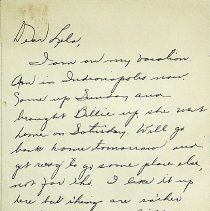 Dear Lola,
I am on my vacation
Am in Indianapolis now.
Came up Sunday and
brought Billie up, she went
home on Saturday. Will go
back home tomorrow and
get ready to go some place else,
not for sho. I like it up
here but things are rather